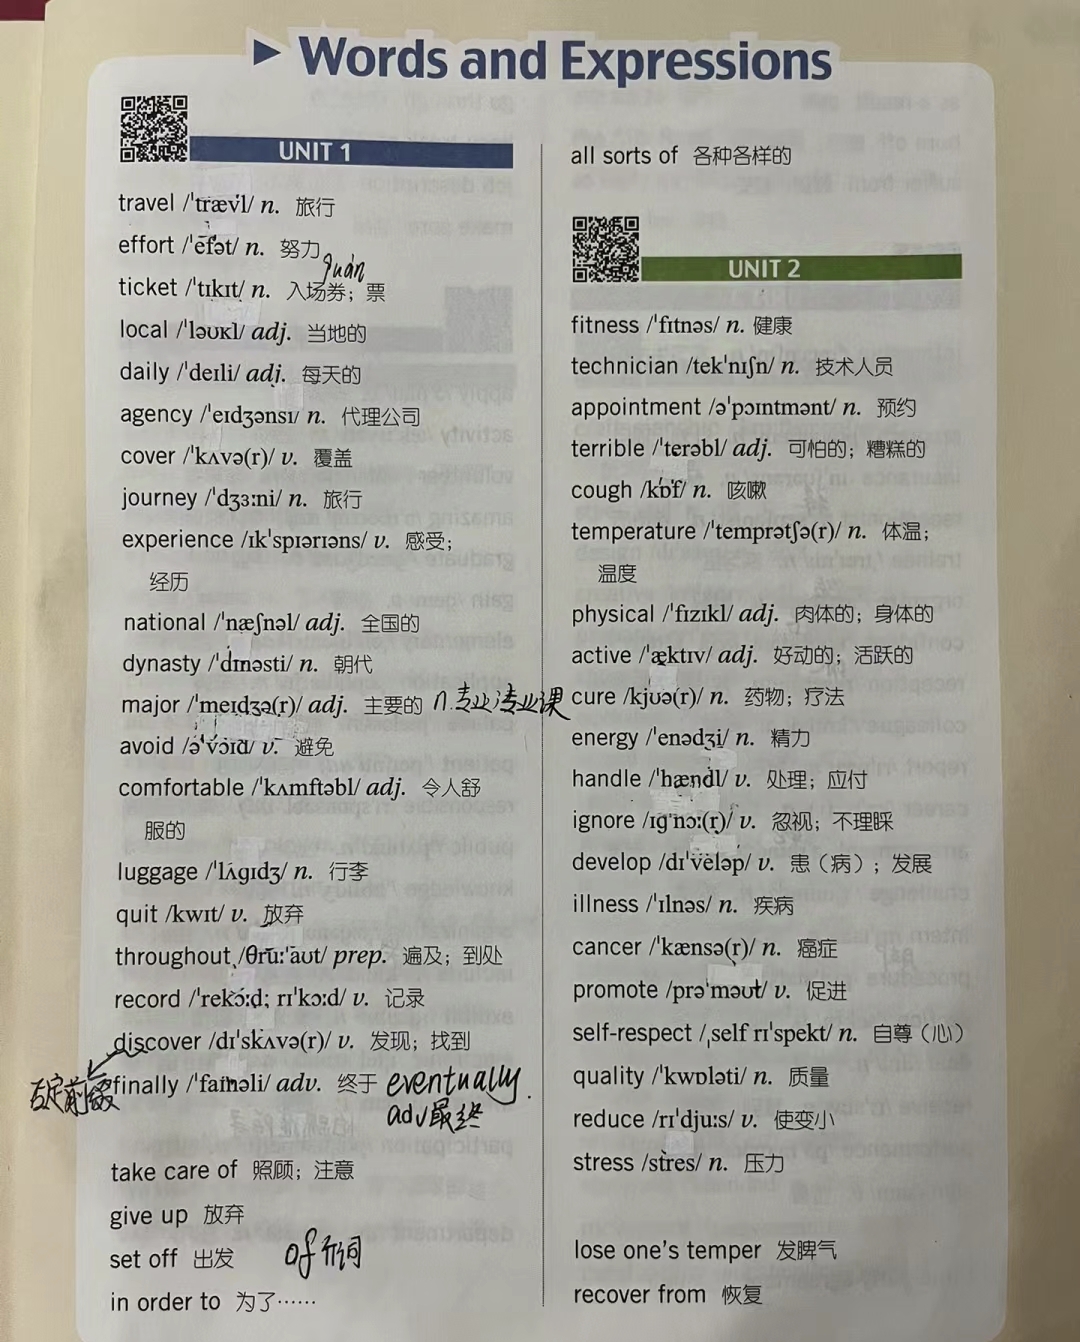 Words and Expressions
UNIT 1
travel /ˈtrævl/ n. 旅行
effort /ˈefət/ n. 努力
quán
ticket /ˈtɪkɪt/ n. 入场券；票
local /ˈləʊkl/ adj. 当地的
daily /ˈdeɪli/ adj. 每天的
agency /ˈeɪdʒənsɪ/ n. 代理公司
cover /ˈkʌvə(r)/ v. 覆盖
journey /ˈdʒɜːni/ n. 旅行
experience /ɪkˈspɪərɪəns/ v. 感受；
经历
national /ˈnæʃnəl/ adj. 全国的
dynasty /ˈdɪnəsti/ n. 朝代
major /ˈmeɪdʒə(r)/ adj. 主要的 n.专业；专业课
avoid /əˈvɔɪd/ v. 避免
comfortable /ˈkʌmftəbl/ adj. 令人舒
服的
luggage /ˈlʌɡɪdʒ/ n. 行李
quit /kwɪt/ v. 放弃
throughout /θruːˈaʊt/ prep. 遍及；到处
record /ˈrekɔːd; rɪˈkɔːd/ v. 记录
discover /dɪˈskʌvə(r)/ v. 发现；找到
否定前缀
finally /ˈfaɪnəli/ adv. 终于 eventually.
adv最终
take care of 照顾；注意
give up 放弃
set off 出发 of 介词
in order to 为了……
all sorts of 各种各样的
UNIT 2
fitness /ˈfɪtnəs/ n. 健康
technician /tekˈnɪʃn/ n. 技术人员
appointment /əˈpɔɪntmənt/ n. 预约
terrible /ˈterəbl/ adj. 可怕的；糟糕的
cough /kɒf/ n. 咳嗽
temperature /ˈtemprətʃə(r)/ n. 体温；
温度
physical /ˈfɪzɪkl/ adj. 肉体的；身体的
active /ˈæktɪv/ adj. 好动的；活跃的
cure /kjʊə(r)/ n. 药物；疗法
energy /ˈenədʒi/ n. 精力
handle /ˈhændl/ v. 处理；应付
ignore /ɪɡˈnɔː(r)/ v. 忽视；不理睬
develop /dɪˈveləp/ v. 患（病）；发展
illness /ˈɪlnəs/ n. 疾病
cancer /ˈkænsə(r)/ n. 癌症
promote /prəˈməʊt/ v. 促进
self-respect /ˌself rɪˈspekt/ n. 自尊（心）
quality /ˈkwɒləti/ n. 质量
reduce /rɪˈdjuːs/ v. 使变小
stress /stres/ n. 压力
lose one's temper 发脾气
recover from 恢复